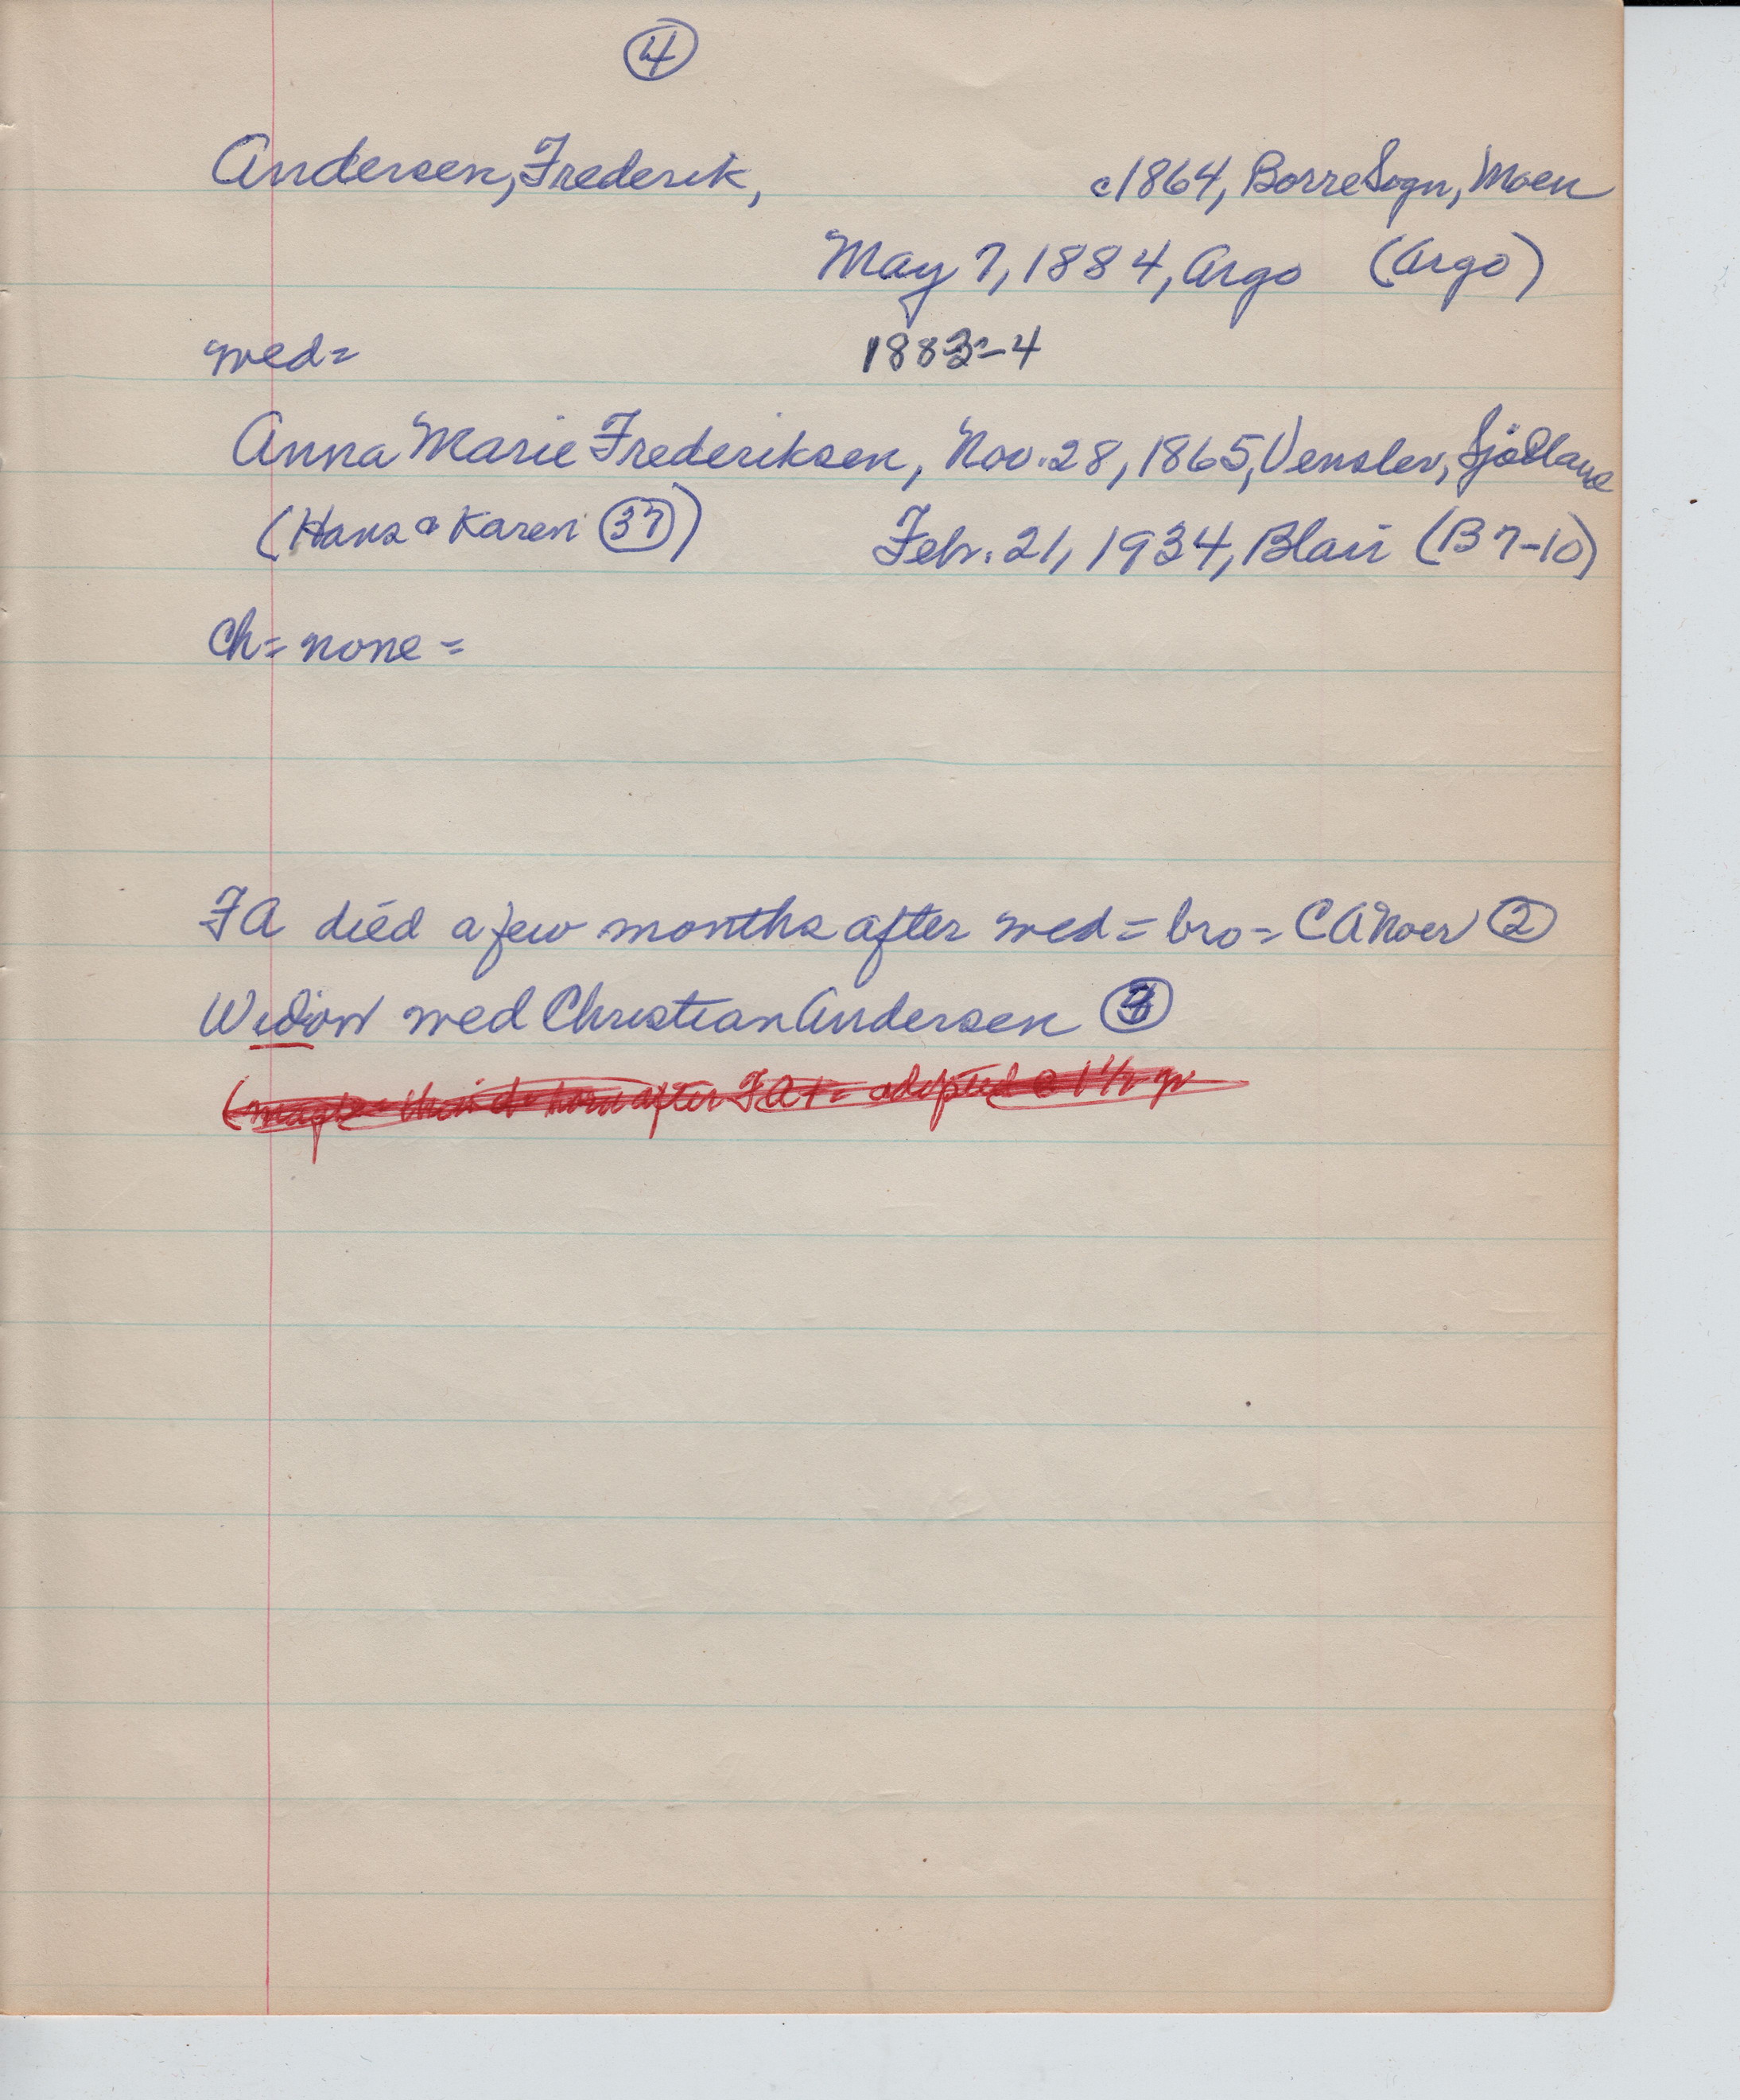 4
Andersen, Frederik, c1864, Borre Sogn, Moen
May 7, 1884, Argo (Argo)
wed= 1883-4
Anna Marie Frederiksen, Nov. 28, 1865, Venslev, Sjælland
(Hans & Karen 37) Feb. 21, 1934, Blair (B7-10)
Ch= none =
FA died a few months after wed= bro= CA Noer 2
Widow wed Christian Andersen 3
born after FA+= adopted @ 1 1/2 yr